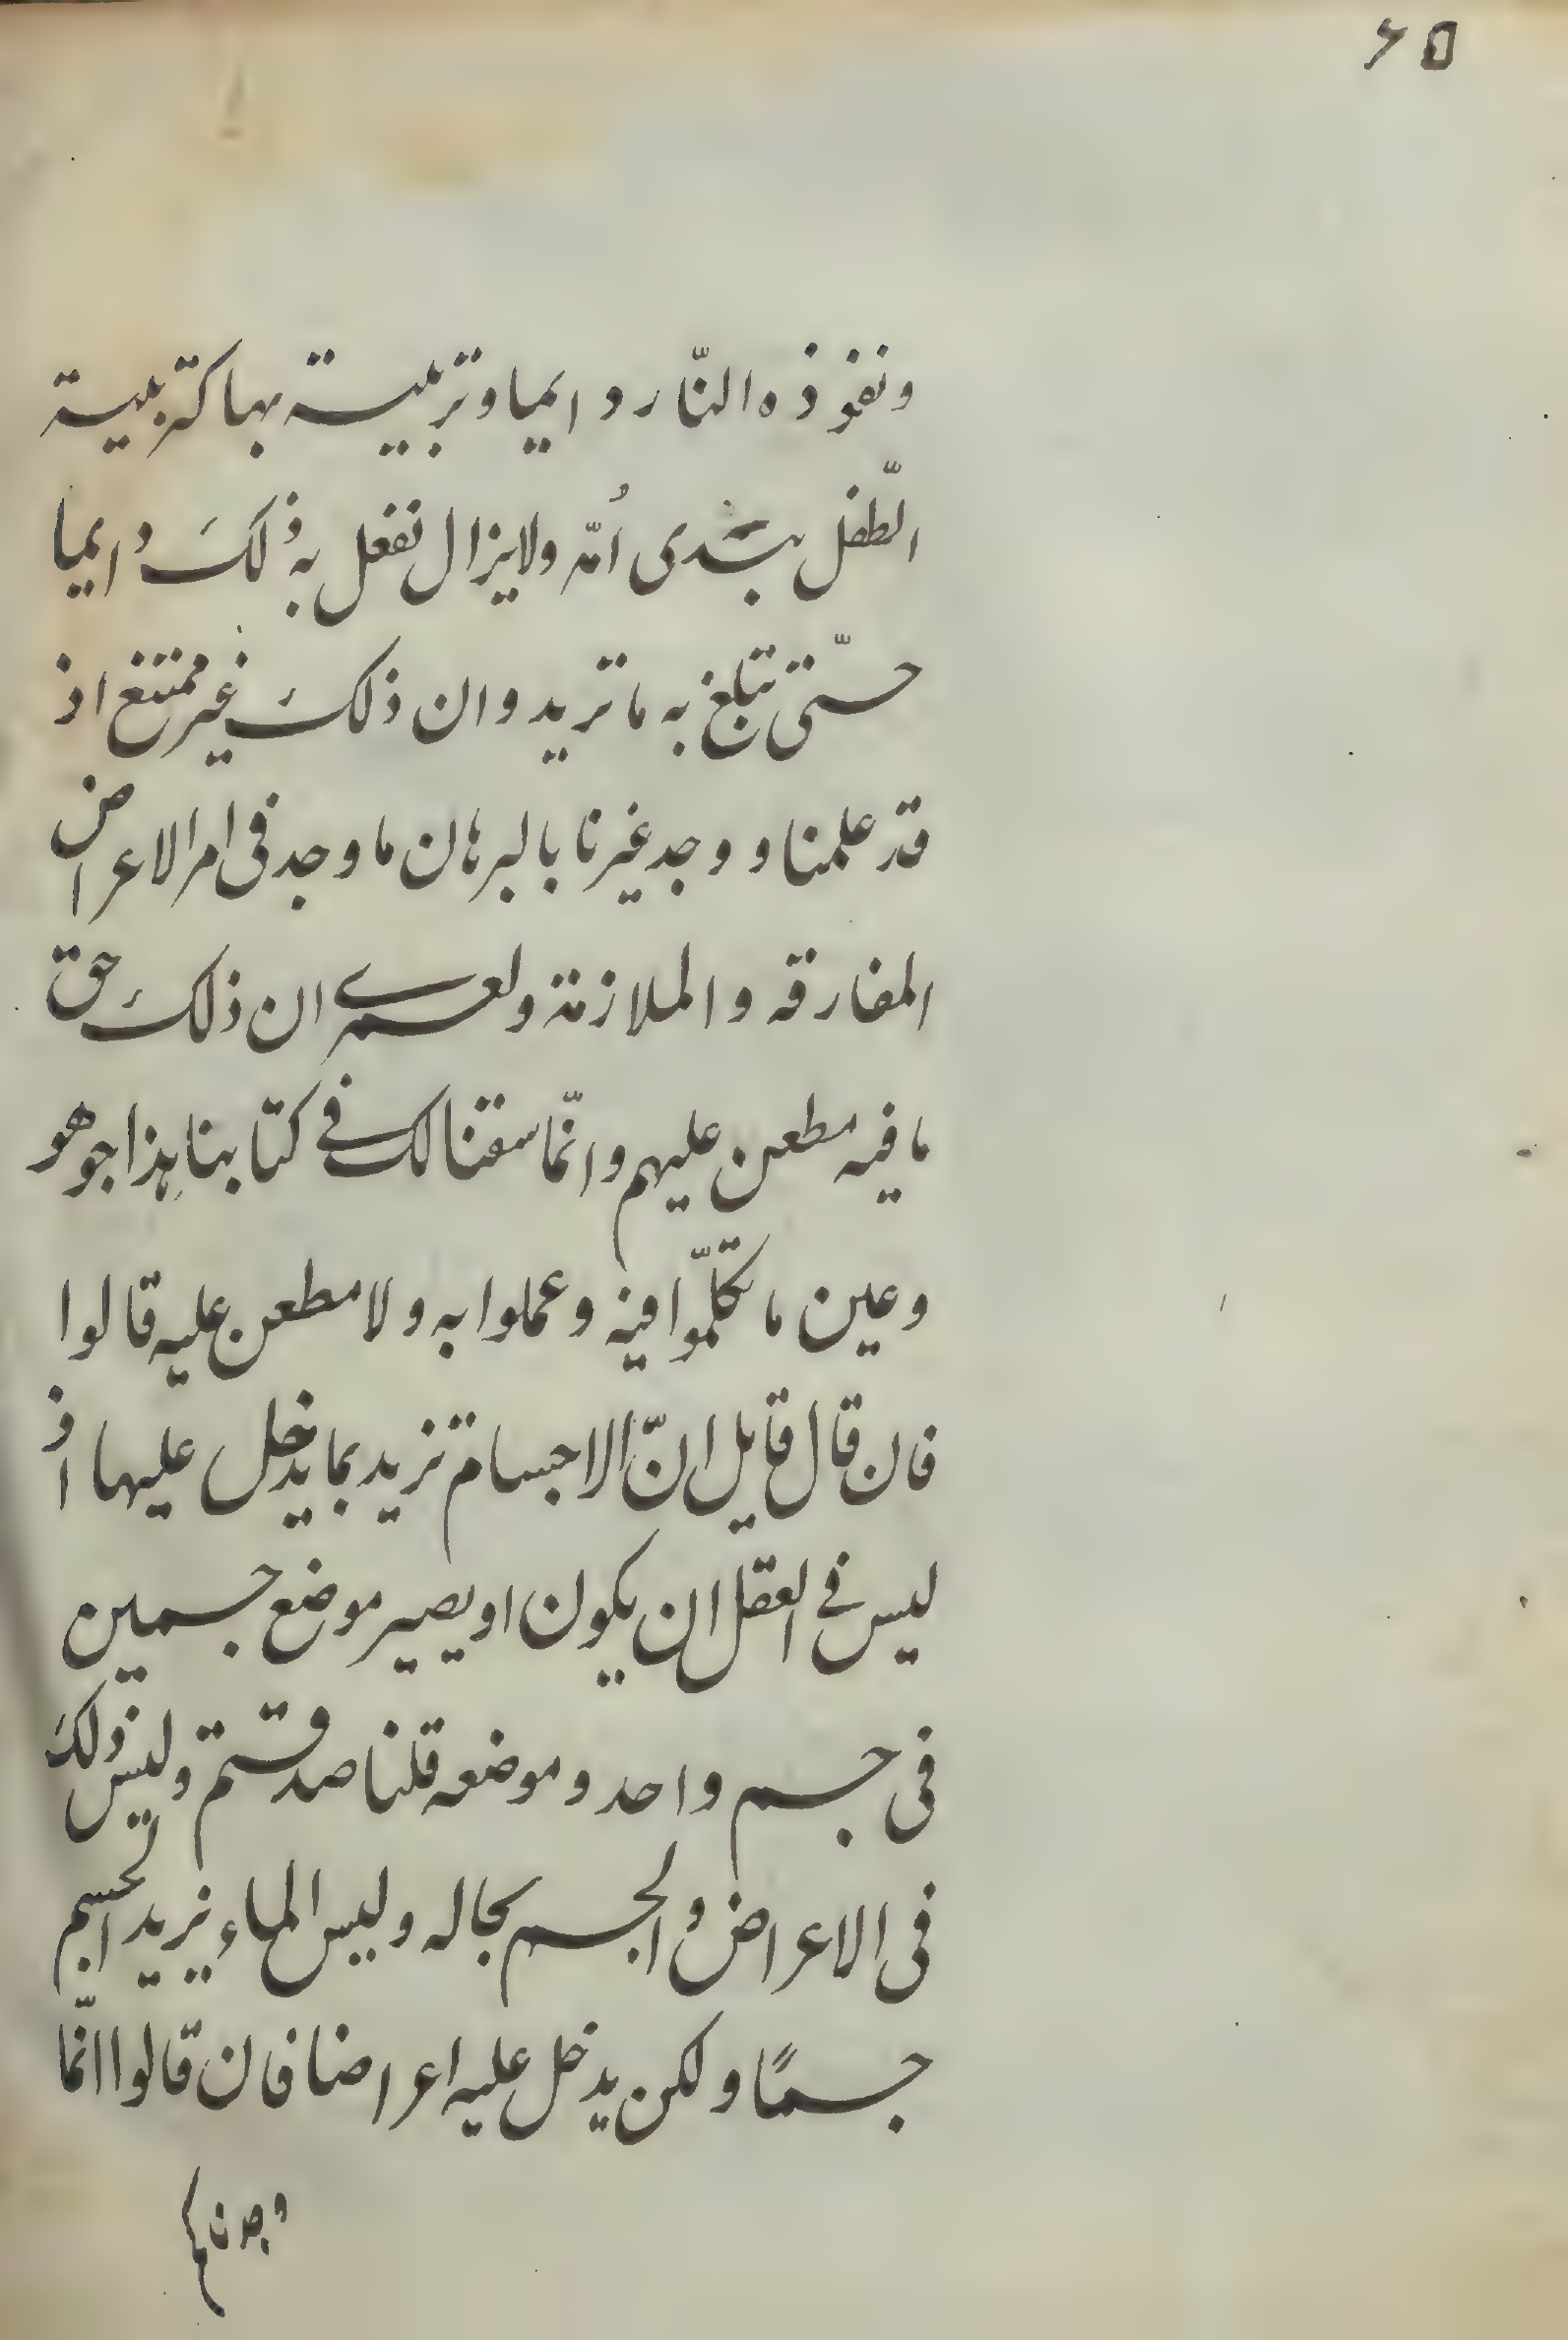 ٦٥
ونفوذه النّار دايما وتربيية بهاكتربيية
الطّفل بثدى اُمّه ولايزال نفعل به ذلك دايما
حتّى تبلغ به ما تريد وان ذلك غير ممتنع اذ
قد علمنا ووجد غيرنا بالبرهان ما وجد فى امر الاعراض
المفارقه والملازمة ولعمرى ان ذلك حق
ما فيه مطعن عليهم وانّما سقنا لك فى كتابنا هذا جوهو
وعين ما تكلّموا فيه وعملوا به ولا مطعن عليه قالوا
فان قال قايل انّ الاجسام تزيد بما يدخل عليها اذ
ليس فى العقل ان يكون او يصير موضع جسمين
فى جسم واحد وموضعه قلنا صدقتم وليس ذلك
فى الاعراض والجسم بحاله وليس الماء يزيد الجسم
جسمًا ولكن يدخل عليه اعراضا فان قالوا انّما
وجدناكم